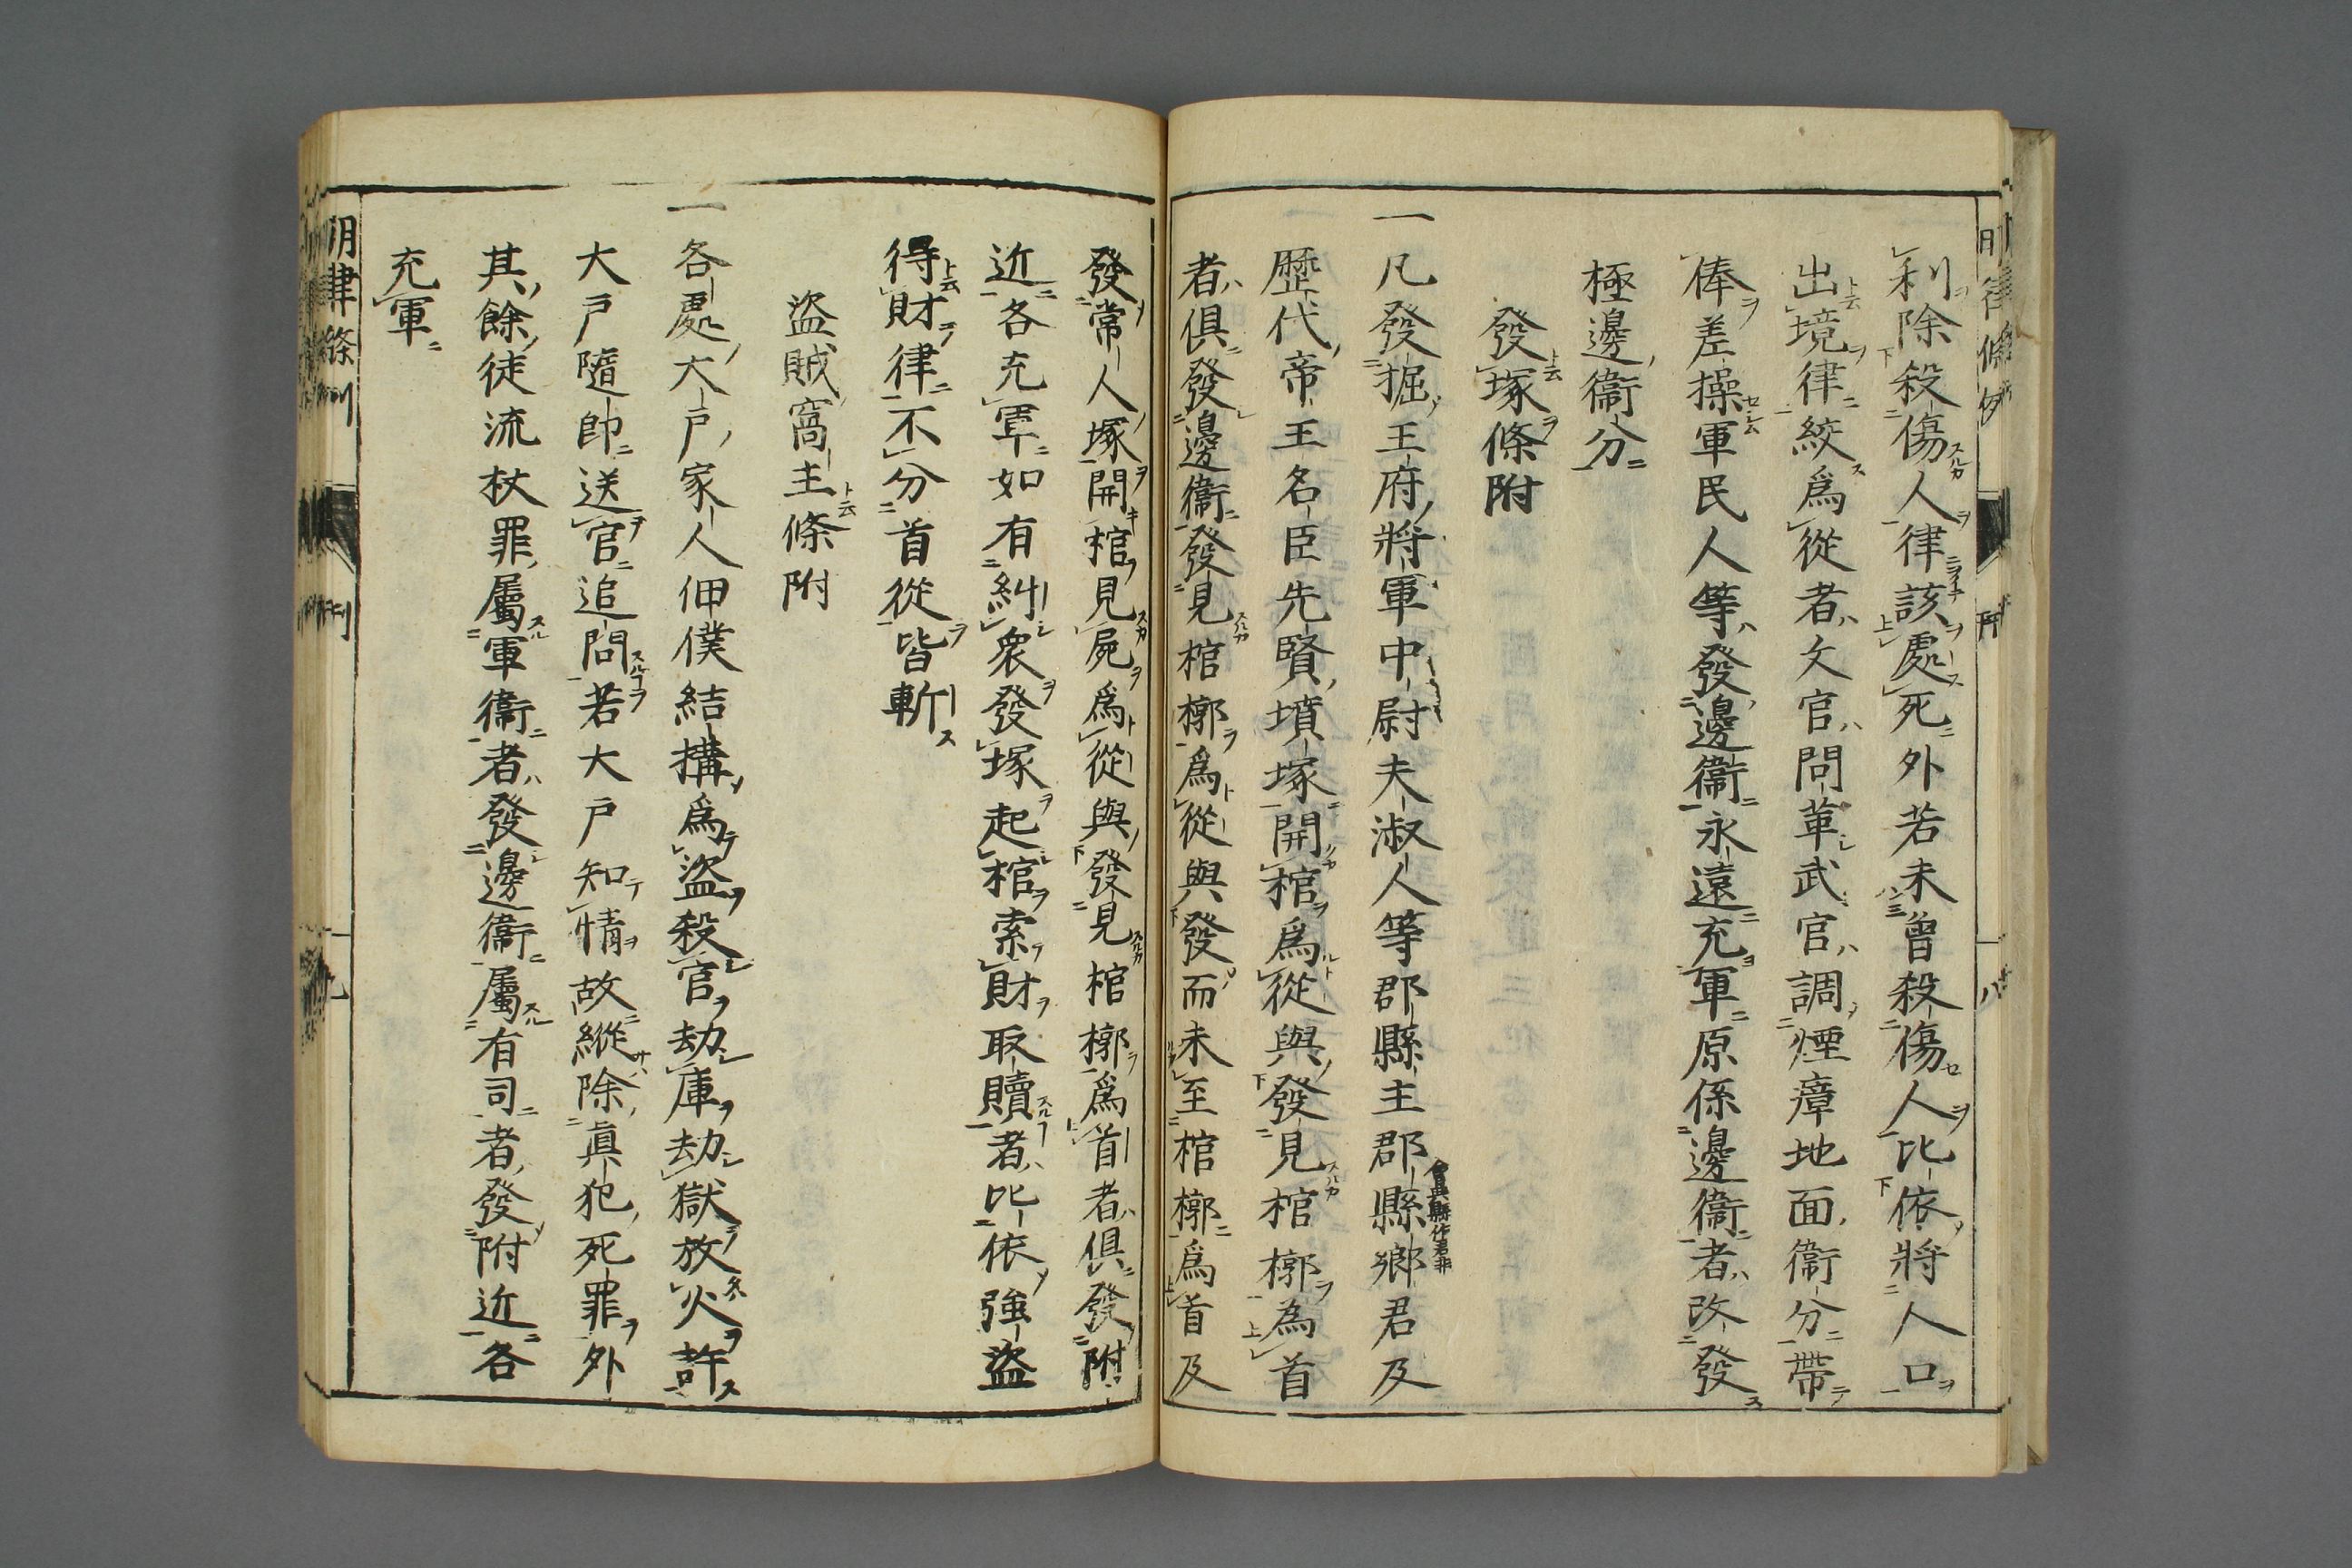 利除殺傷人律該處死外若未曾殺傷人比依將人口
出境律絞爲從者文官問革武官調煙瘴地面衞分帶
俸差操軍民人等發邊衞永遠充軍原係邊衞者改發
極邊衞分
發塚條附
一凡發掘王府將軍中尉夫淑人等郡縣主郡縣鄉君及
歷代帝王名臣先賢墳塚開棺爲從與發見棺槨為首
者俱發邊衞發見棺槨爲從與發而未至棺槨爲首及
發常人塚開棺見屍爲從與發見棺槨爲首者俱發附
近各充軍如有糾衆發塚起棺索財取贖者比依強盜
得財律不分首從皆斬
盜賊窩主條附
一各處大戶家人佃僕結搆爲盜殺官劫庫劫獄放火許
大戶隨卽送官追問若大戶知情故縱除眞犯死罪外
其餘徒流杖罪屬軍衞者發邊衞屬有司者發附近各
充軍